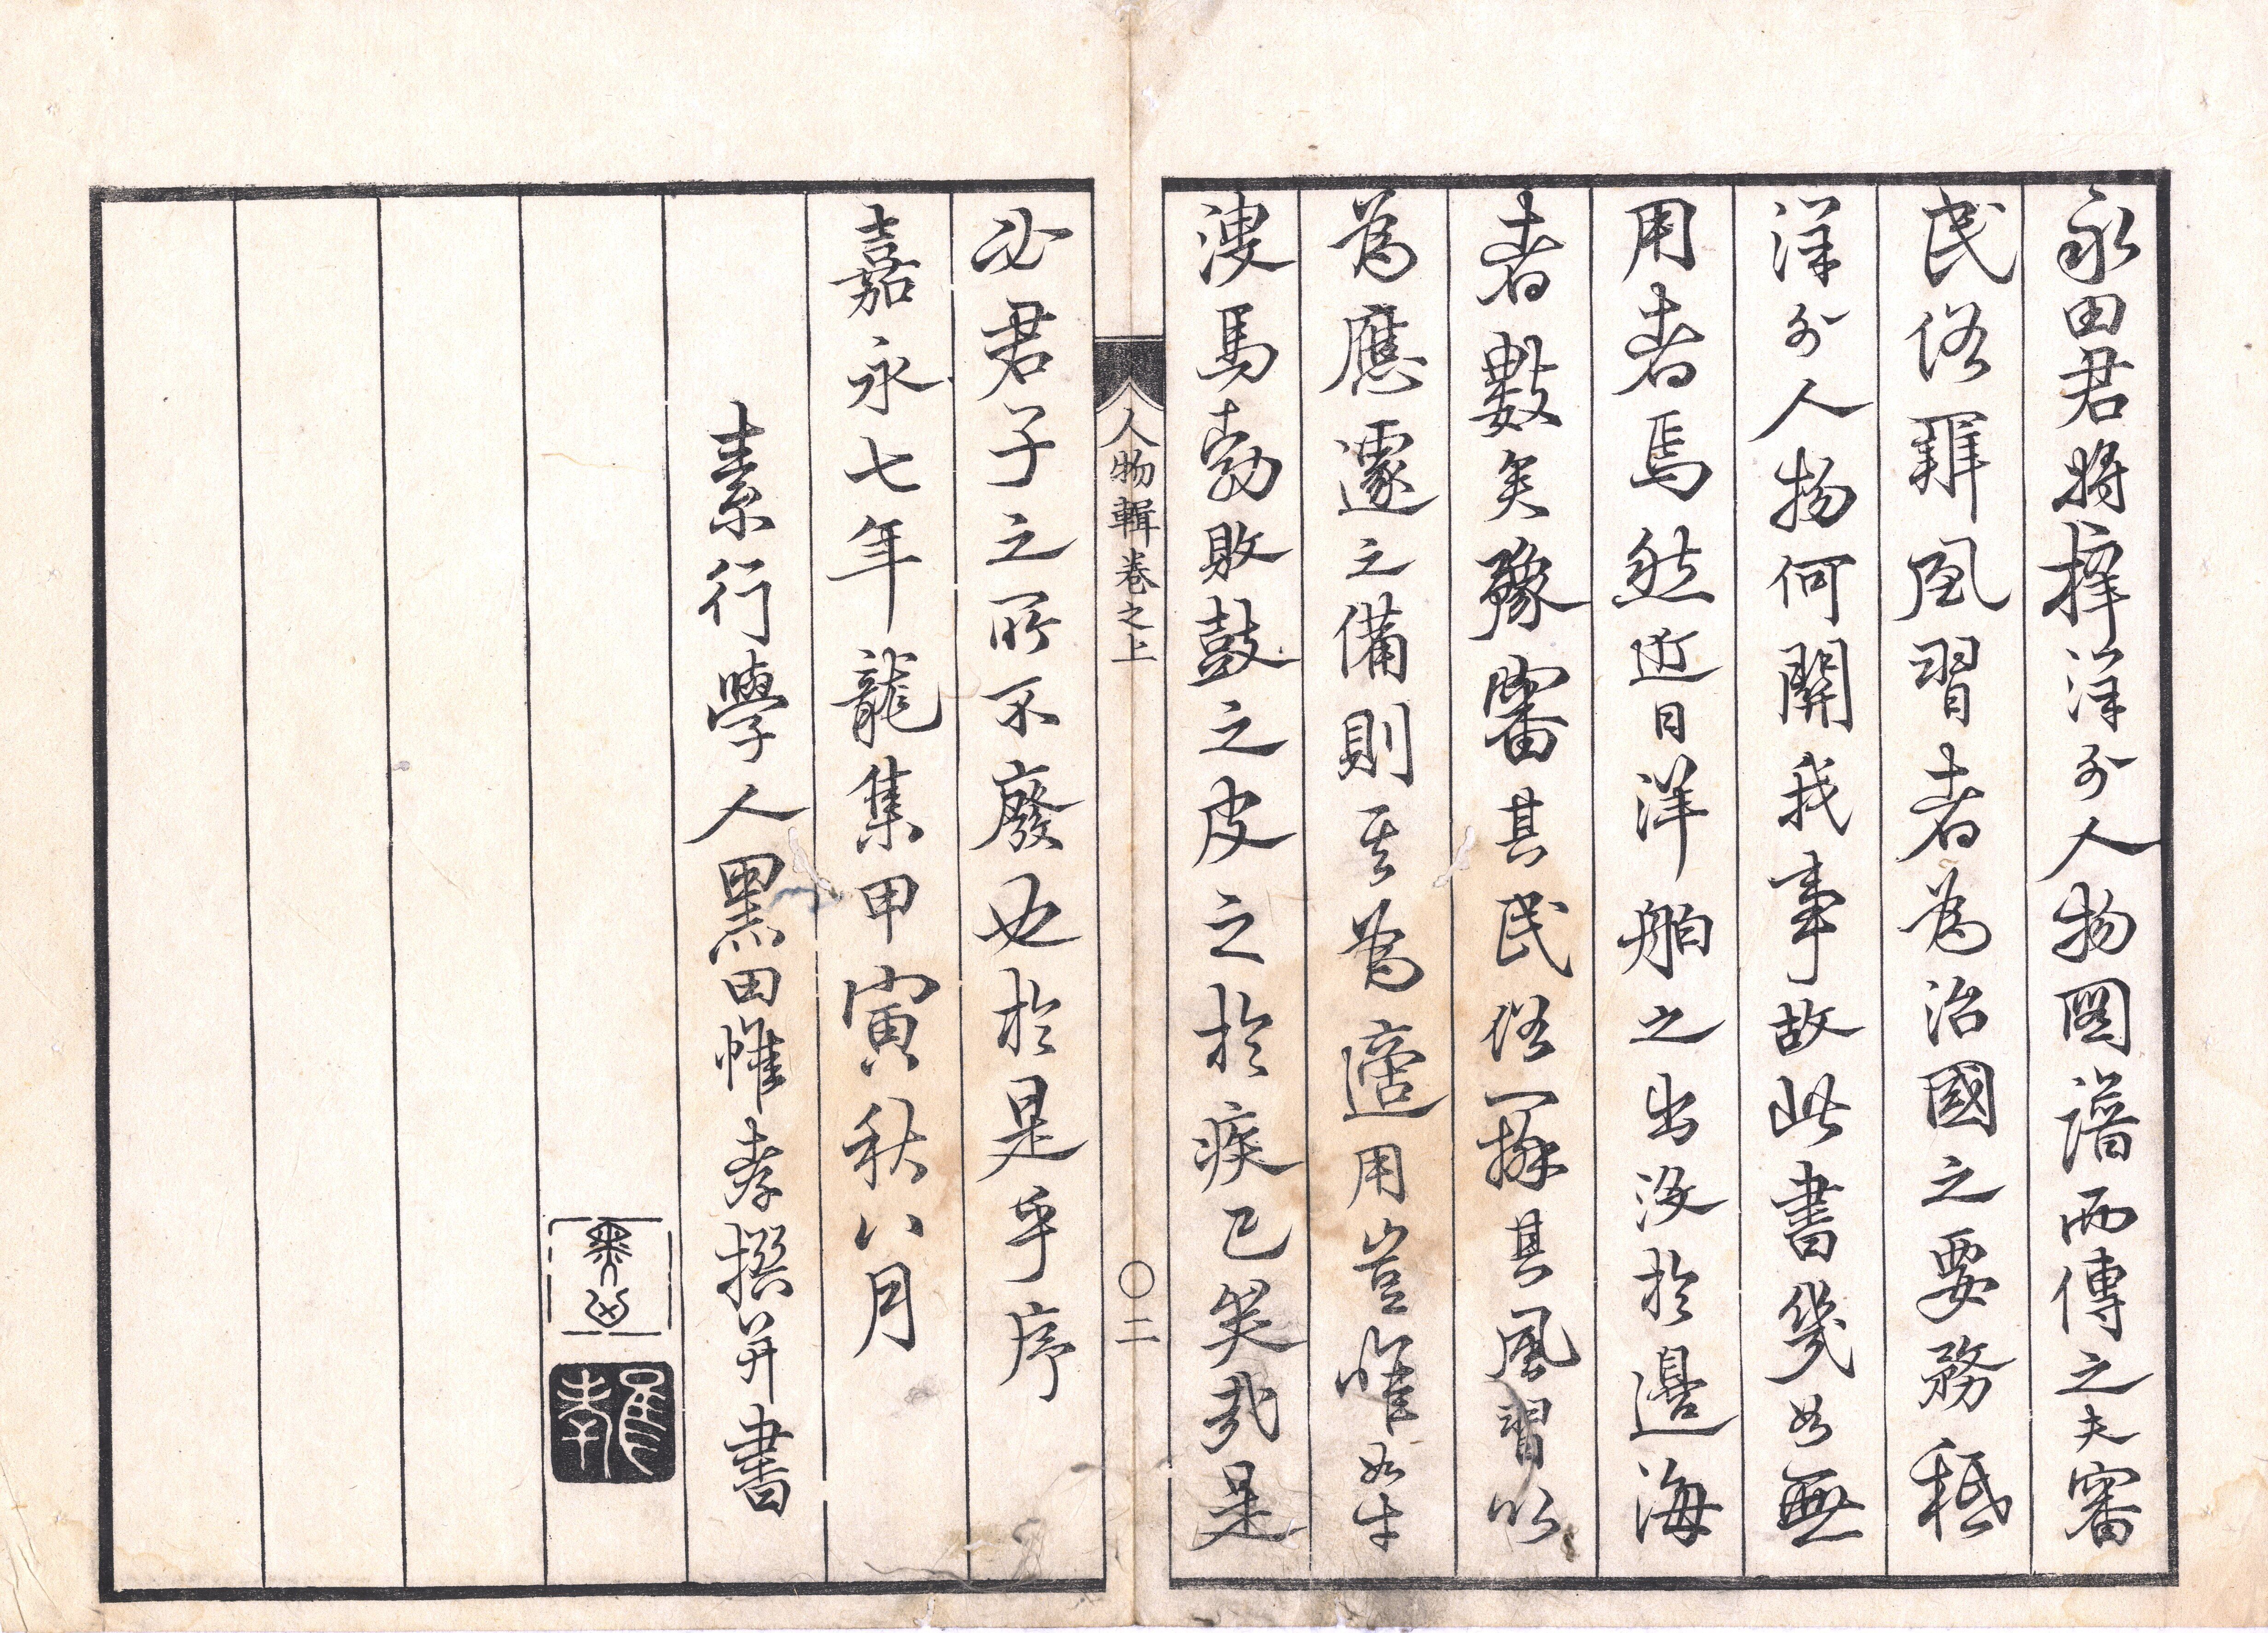 永田君將擇洋外人物圖譜而傳之夫審
民俗辨風習者為治國之要務秖
洋外人物何關我事故此書幾如無
用者焉然近日洋舶之出沒於邊海
者數矣豫審其民俗辨其風習以
為應遽之備則其為適用豈惟如牛
溲馬勃敗鼓之皮之於疾已矣哉是
人物輯卷之上
〇二
必君子之所不廢也於是乎序
嘉永七年龍集甲寅秋八月
素行學人黑田惟孝撰并書
惟孝